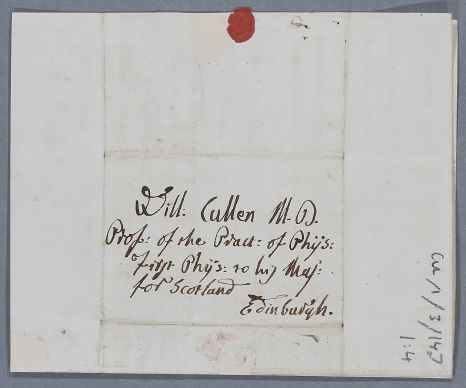 Will: Cullen M.D.
Prof: of the Pract: of Phys:
first Phys: to his Maj:
for Scotland
Edinburgh.
Cul/1/3/147
1:4